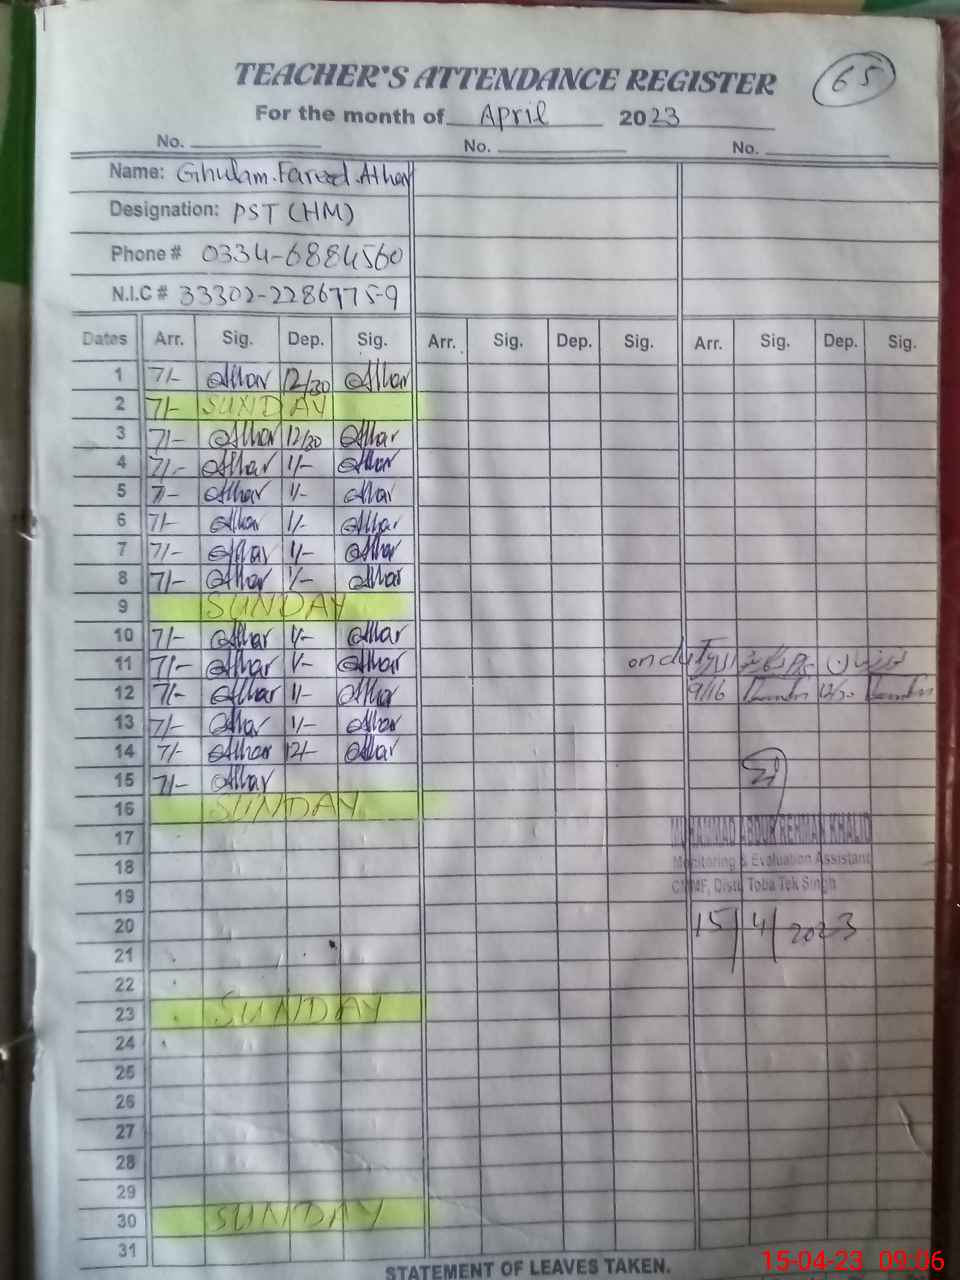 65
TEACHER'S ATTENDANCE REGISTER
For the month of April 2023
No. No. No.
Name: Ghulam.Fareed.Athar
Designation: PST (HM)
Phone # 0334-6884560
N.I.C # 33302-2286775-9
Dates Arr. Sig. Dep. Sig. Arr. Sig. Dep. Sig. Arr. Sig. Dep. Sig.
1 7/- Athar 12/30 Athar
2 7/- SUNDAY
3 7/- Athar 12/30 Athar
4 7/- Athar 1/- Athar
5 7/- Athar 1/- Athar
6 7/- Athar 1/- Athar
7 7/- Athar 1/- Athar
8 7/- Athar 1/- Athar
9 SUNDAY
10 7/- Athar 1/- Athar
11 7/- Athar 1/- Athar on duty
12 7/- Athar 1/- Athar 9/16 12/30
13 7/- Athar 1/- Athar
14 7/- Athar 12/- Athar
15 7/- Athar
16 SUNDAY
17 MUHAMMAD ABDUR REHMAN KHALID
18 Monitoring & Evaluation Assistant
19 CMMF, Distt Toba Tek Singh
20 15/4/2023
21
22
23 SUNDAY
24
25
26
27
28
29
30 SUNDAY
31
STATEMENT OF LEAVES TAKEN.
15-04-23 09:06